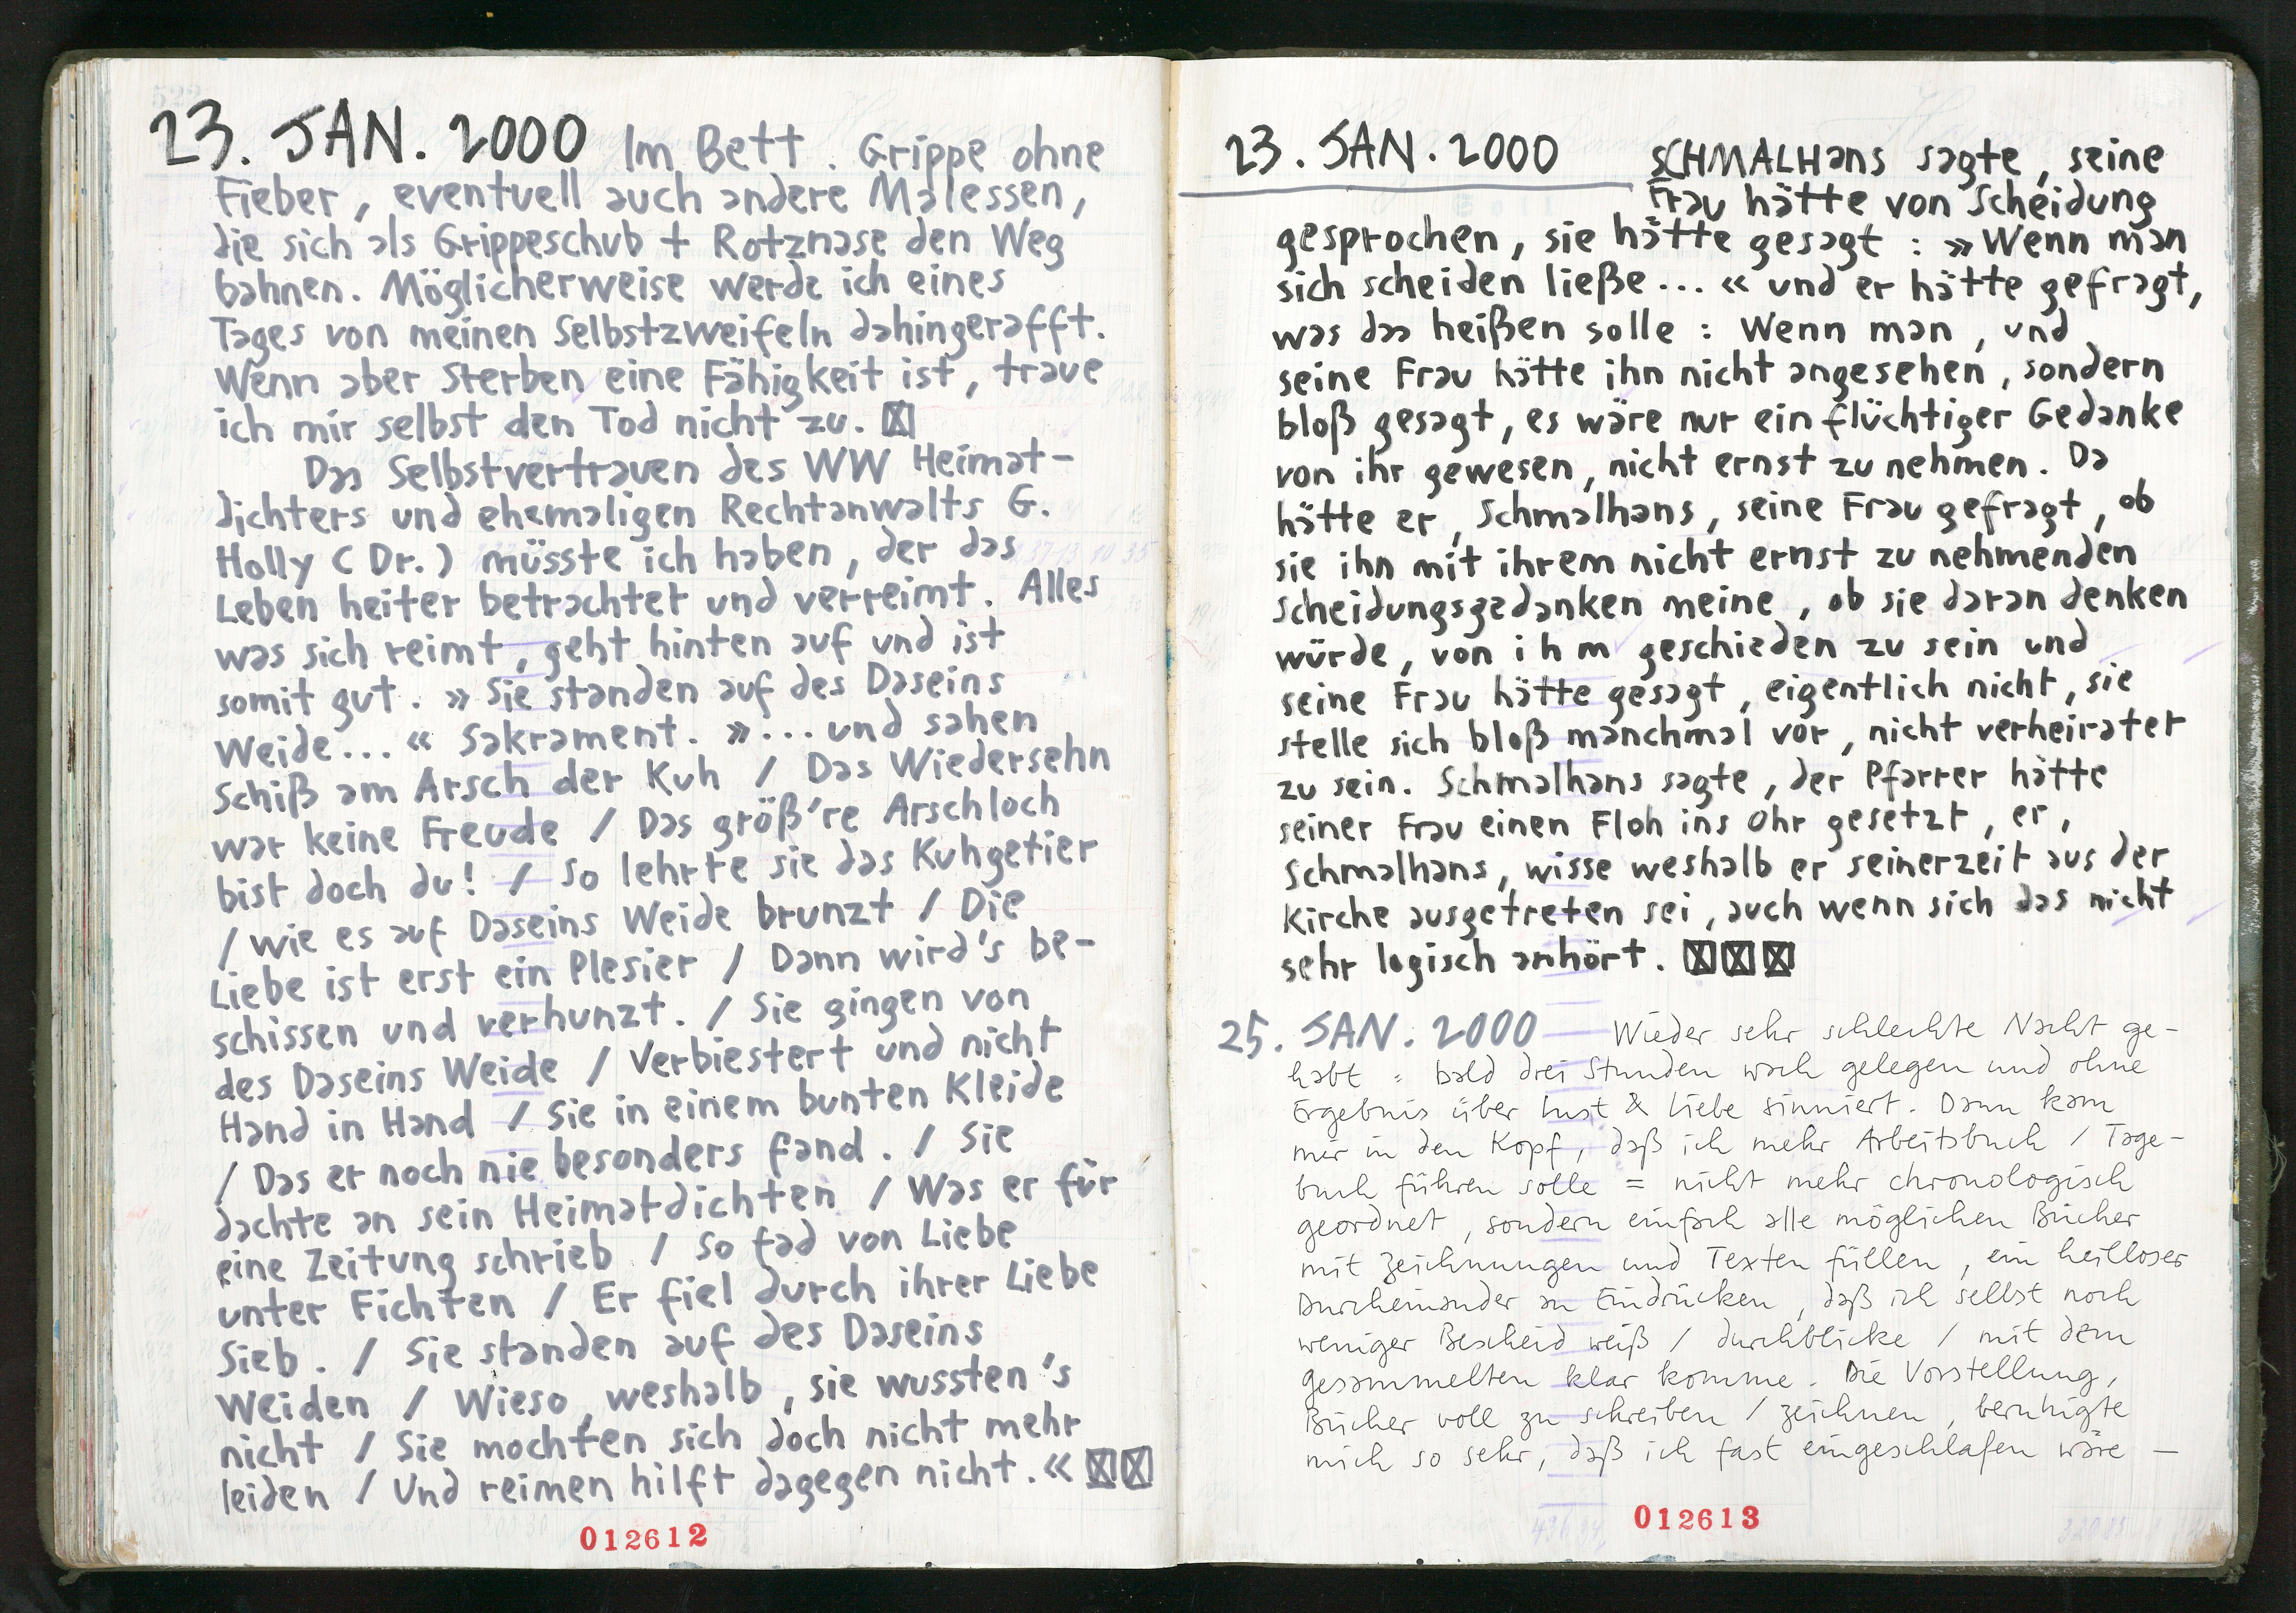 23. JAN. 2000 Im Bett. Grippe ohne
Fieber, eventuell auch andere Malessen,
die sich als Grippeschub + Rotznase den Weg
bahnen. Möglicherweise werde ich eines
Tages von meinen Selbstzweifeln dahingerafft.
Wenn aber Sterben eine Fähigkeit ist, traue
ich mir selbst den Tod nicht zu. ☒
Das Selbstvertrauen des WW Heimat-
dichters und ehemaligen Rechtanwalts G.
Holly (Dr.) müsste ich haben, der das
Leben heiter betrachtet und verreimt. Alles
was sich reimt, geht hinten auf und ist
somit gut. » Sie standen auf des Daseins
Weide... « Sakrament. »... und sahen
Schiß am Arsch der Kuh / Das Wiedersehn
war keine Freude / Das größ're Arschloch
bist doch du! / So lehrte sie das Kuhgetier
/ wie es auf Daseins Weide brunzt / Die
Liebe ist erst ein Plesier / Dann wird's be-
schissen und verhunzt. / Sie gingen von
des Daseins Weide / Verbiestert und nicht
Hand in Hand / Sie in einem bunten Kleide
/ Das er noch nie besonders fand. / Sie
dachte an sein Heimatdichten / Was er für
eine Zeitung schrieb / So fad von Liebe
unter Fichten / Er fiel durch ihrer Liebe
Sieb. / Sie standen auf des Daseins
Weiden / Wieso, weshalb, sie wussten's
nicht / Sie mochten sich doch nicht mehr
leiden / Und reimen hilft dagegen nicht. « ☒☒
012612
23. JAN. 2000 SCHMALHans sagte, seine
Frau hätte von Scheidung
gesprochen, sie hätte gesagt : » Wenn man
sich scheiden ließe... « und er hätte gefragt,
was das heißen solle : Wenn man, und
seine Frau hätte ihn nicht angesehen, sondern
bloß gesagt, es wäre nur ein flüchtiger Gedanke
von ihr gewesen, nicht ernst zu nehmen. Da
hätte er, Schmalhans, seine Frau gefragt, ob
sie ihn mit ihrem nicht ernst zu nehmenden
Scheidungsgedanken meine, ob sie daran denken
würde, von i h m geschieden zu sein und
seine Frau hätte gesagt, eigentlich nicht, sie
stelle sich bloß manchmal vor, nicht verheiratet
zu sein. Schmalhans sagte, der Pfarrer hätte
seiner Frau einen Floh ins Ohr gesetzt, er,
Schmalhans, wisse weshalb er seinerzeit aus der
Kirche ausgetreten sei, auch wenn sich das nicht
sehr logisch anhört. ☒☒☒
25. JAN. 2000 Wieder sehr schlechte Nacht ge-
habt = bald drei Stunden wach gelegen und ohne
Ergebnis über Lust & Liebe sinniert. Dann kam
mir in den Kopf, daß ich mehr Arbeitsbuch / Tage-
buch führen solle = nicht mehr chronologisch
geordnet, sondern einfach alle möglichen Bücher
mit Zeichnungen und Texten füllen, ein heilloser
Durcheinander an Eindrücken, daß ich selbst noch
weniger Bescheid weiß / durchblicke / mit dem
gesammelten klar komme. Die Vorstellung,
Bücher voll zu schreiben / zeichnen, beruhigte
mich so sehr, daß ich fast eingeschlafen wäre —
012613